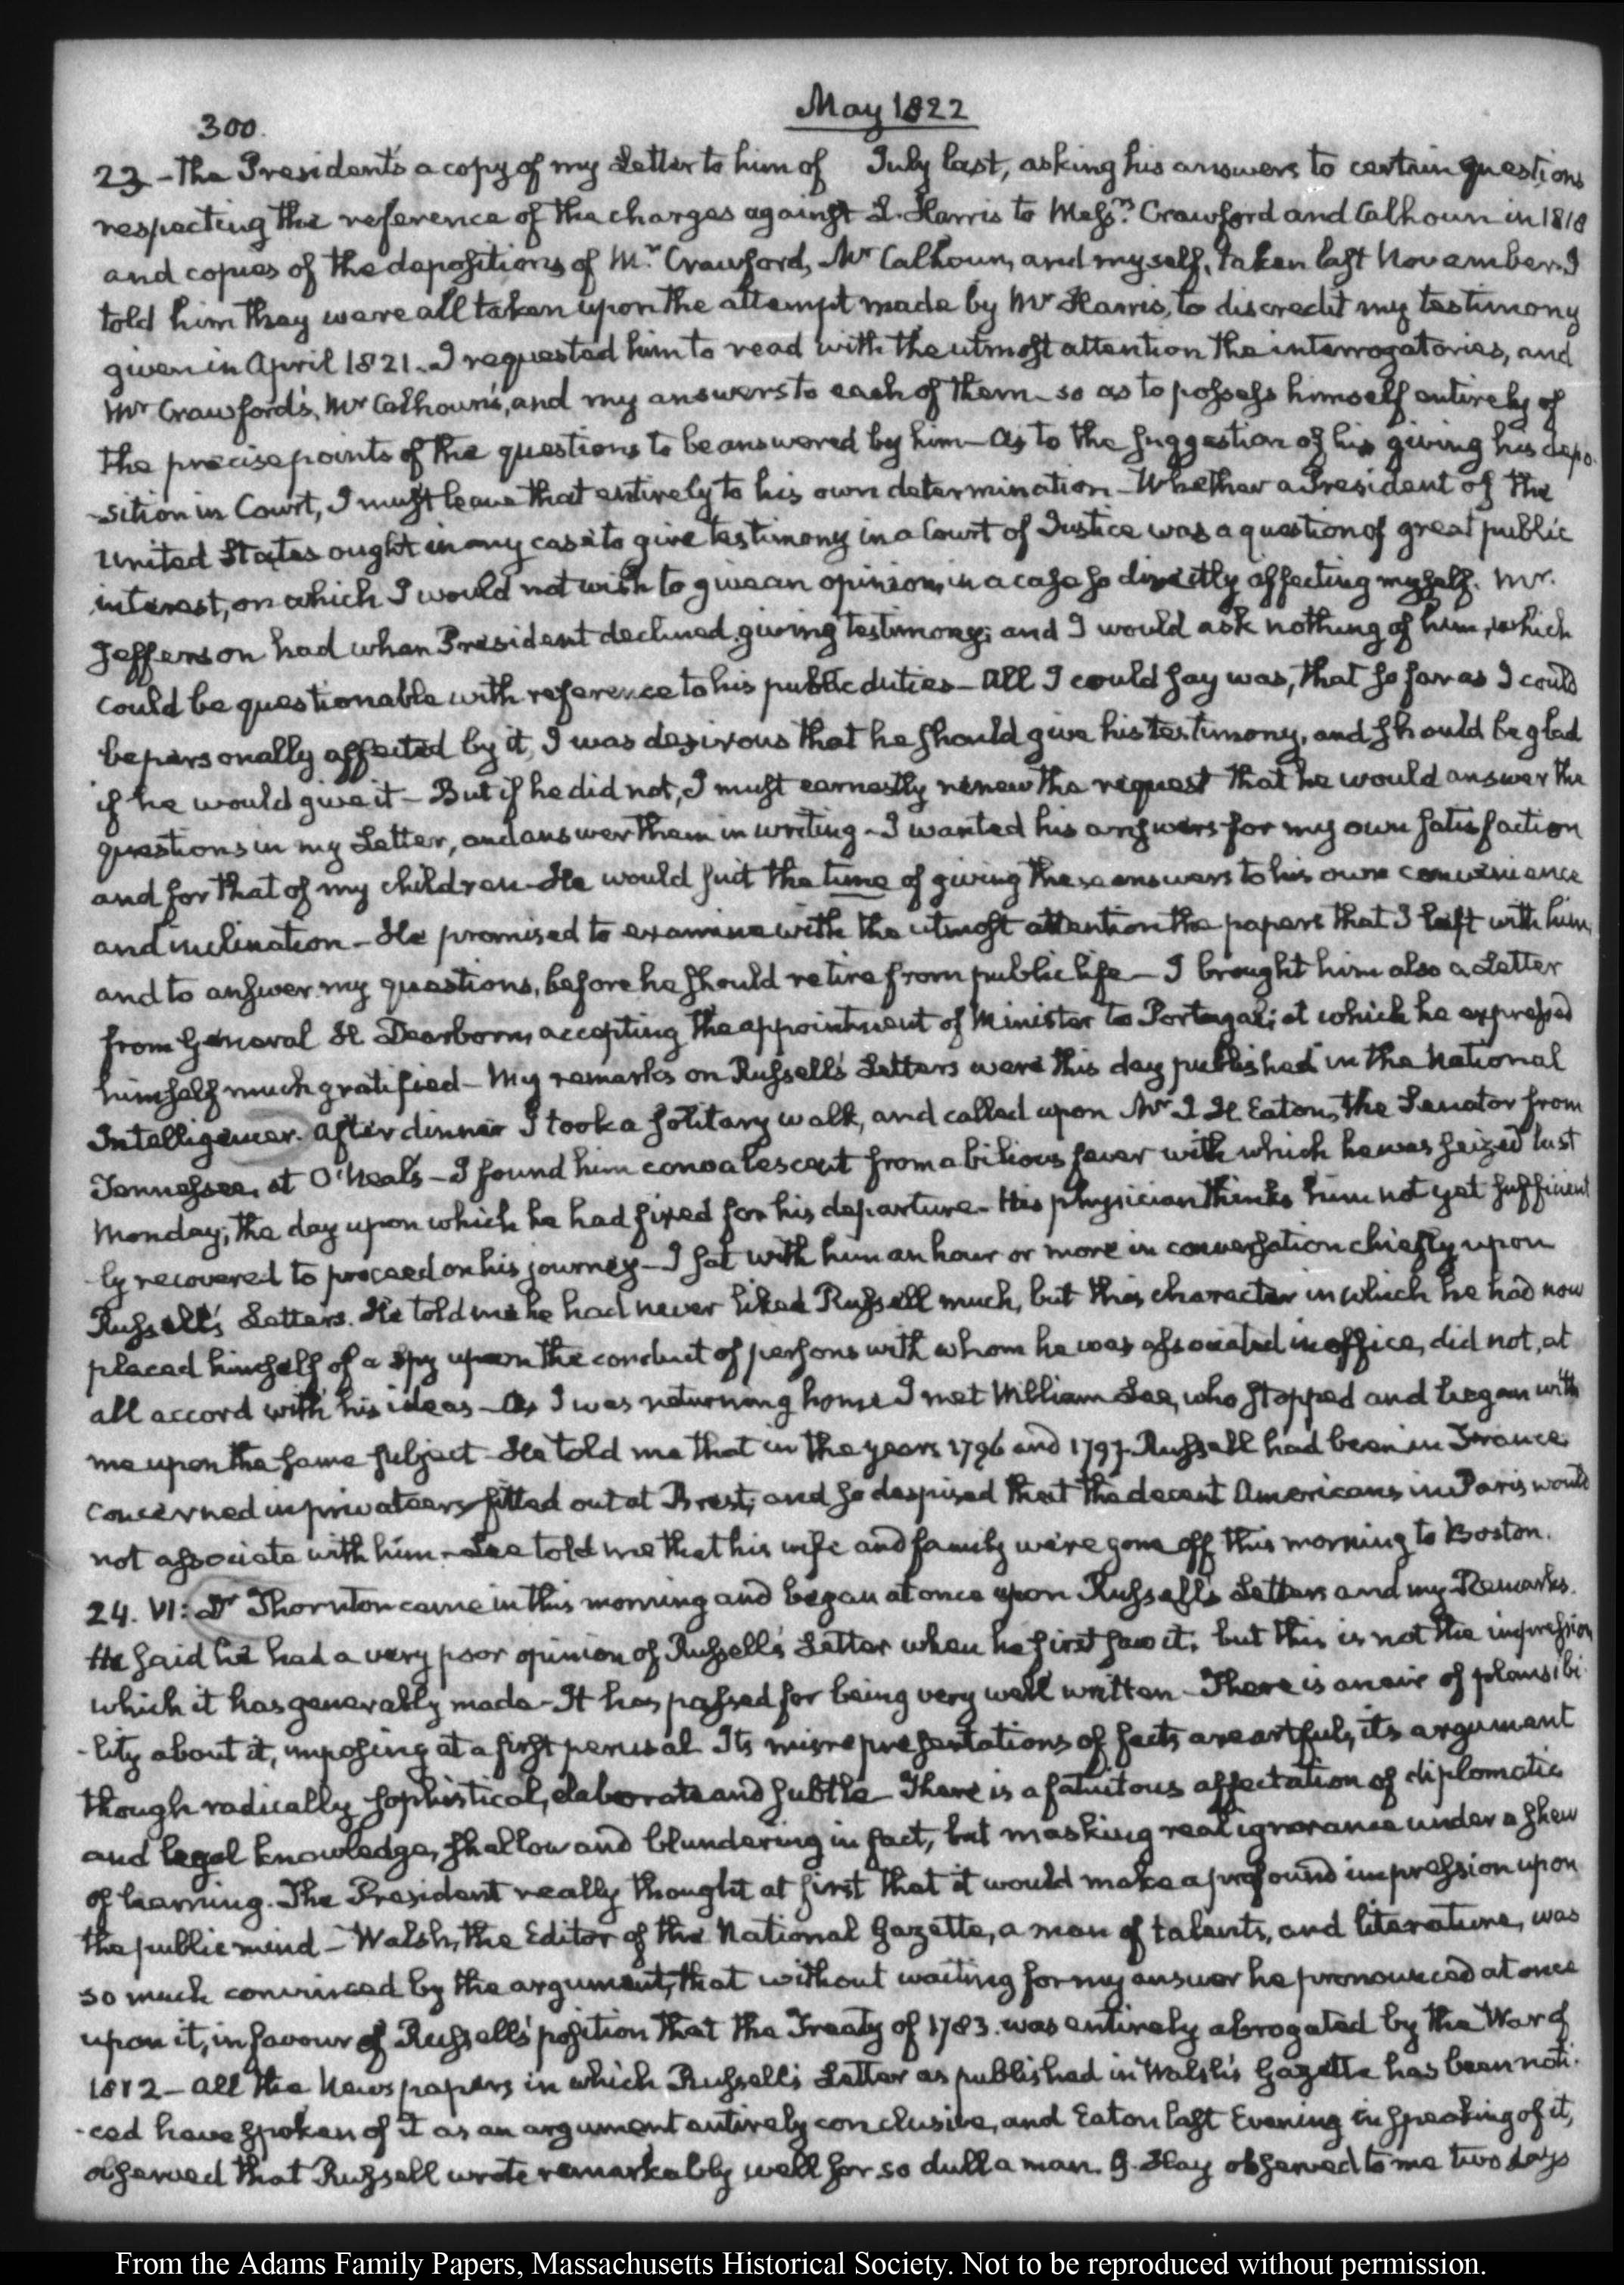 May 1822
300.
23 - the President's a copy of my Letter to him of July last, asking his answers to certain questions
respecting the reference of the charges against L. Harris to Mess.rs Crawford and Calhoun in 1818
and copies of the depositions of Mr. Crawford, Mr Calhoun, and myself, taken last November. I
told him they were all taken upon the attempt made by Mr Harris, to discredit my testimony
given in April 1821. I requested him to read with the utmost attention the interrogatories, and
Mr Crawford's, Mr Calhoun's, and my answers to each of them - so as to possess himself entirely of
the precise points of the questions to be answered by him - As to the suggestion of his giving his depo-
-sition in Court, I must leave that entirely to his own determination - Whether a President of the
United States ought in any case to give testimony in a Court of Justice was a question of great public
interest, on which I would not wish to give an opinion, in a case so directly affecting myself. Mr.
Jefferson had when President declined giving testimony; and I would ask nothing of him, which
could be questionable with reference to his public duties - All I could say was, that so far as I could
be personally affected by it, I was desirous that he should give his testimony, and should be glad
if he would give it - But if he did not, I must earnestly renew the request that he would answer the
questions in my Letter, and answer them in writing - I wanted his answers for my own satisfaction
and for that of my children - He would suit the time of giving these answers to his own convenience
and inclination - He promised to examine with the utmost attention the papers that I left with him,
and to answer my questions, before he should retire from public life - I brought him also a Letter
from General H. Dearborn, accepting the appointment of Minister to Portugal; at which he expressed
himself much gratified - My remarks on Russell's Letters were this day published in the National
Intelligencer. After dinner I took a solitary walk, and called upon Mr J H Eaton, the Senator from
Tennessee, at O'Neal's - I found him convalescent from a bilious fever with which he was seized last
Monday; the day upon which he had fixed for his departure - His physician thinks him not yet sufficient
-ly recovered to proceed on his journey - I sat with him an hour or more in conversation chiefly upon
Russell's Letters. He told me he had never liked Russell much, but this character in which he had now
placed himself of a spy upon the conduct of persons with whom he was associated in office, did not, at
all accord with his ideas - As I was returning home I met William Lee, who stopped and began with
me upon the same subject - He told me that in the years 1796 and 1797 Russell had been in France
concerned in privateers fitted out at Brest; and so despised that the decent Americans in Paris would
not associate with him - Lee told me that his wife and family were gone off this morning to Boston.
24. VI: Dr Thornton came in this morning and began at once upon Russell's Letters and my Remarks.
He said he had a very poor opinion of Russell's Letter when he first saw it; but this is not the impression
which it has generally made - It has passed for being very well written - There is an air of plausibi-
-lity about it, imposing at a first perusal. Its misrepresentations of facts are artful, its argument
though radically sophistical, elaborate and subtle - There is a fatuitous affectation of diplomatic
and legal knowledge, shallow and blundering in fact, but masking real ignorance under a shew
of learning. The President really thought at first that it would make a profound impression upon
the public mind - Walsh, the Editor of the National Gazette, a man of talents, and literature, was
so much convinced by the argument, that without waiting for my answer he pronounced at once
upon it, in favour of Russell's position that the Treaty of 1783. was entirely abrogated by the War of
1812 - All the Newspapers in which Russell's Letter as published in Walsh's Gazette has been noti-
-ced have spoken of it as an argument entirely conclusive, and Eaton last Evening in speaking of it,
observed that Russell wrote remarkably well for so dull a man. G. Hay observed to me two days
From the Adams Family Papers, Massachusetts Historical Society. Not to be reproduced without permission.